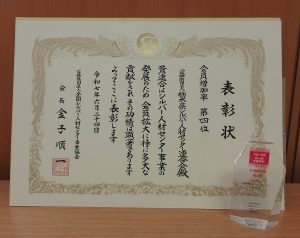 表彰状
会員増加率 第四位
公益財団法人栃木県シルバー人材センター連合会殿
貴連合はシルバー人材センター事業の
発展のため会員拡大に特に多大な
貢献をされその功績は顕著であります
よってここに表彰します
令和七年六月二十四日
公益社団法人全国シルバー人材センター事業協会
会長 金子順一